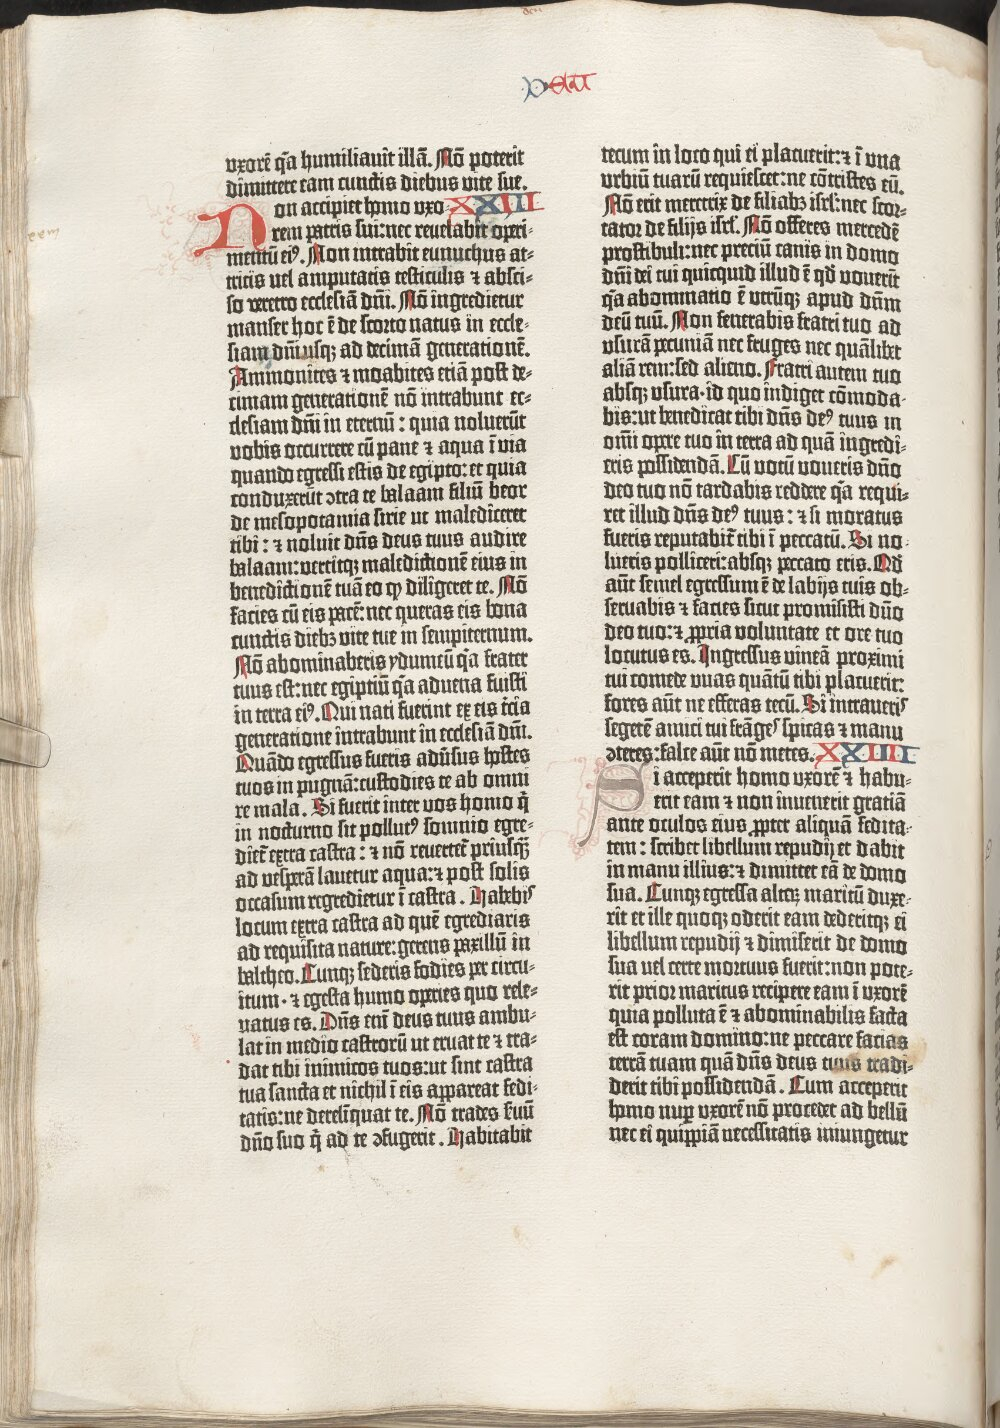 deu
Deut
uxorē q̄a humiliauit illā. Nō poterit
dimittere eam cunctis diebus vite sue.
Non accipiet homo uxo- XXIII
rem patris sui: nec reuelabit operi-
mentū eiꝰ. Non intrabit eunuchus at-
tritis uel amputatis testiculis ⁊ absci-
so veretro ecclesiā dñi. Nō ingredietur
manser hoc ē de scorto natus in eccle-
siam dñi usqꝫ ad decimā generationē.
Ammonites ⁊ moabites etiā post de-
cimam generationē nō intrabunt ec-
clesiam dñi in eternū: quia noluerūt
vobis occurrere cū pane ⁊ aqua ī via
quando egressi estis de egipto: et quia
conduxerūt ↄtra te balaam filiū beor
de mesopotamia sirie ut malediceret
tibi: ⁊ noluit dñs deus tuus audire
balaam: vertitqꝫ maledictionē eius in
benedictionē tuā eo ꝙ diligeret te. Nō
facies cū eis pacē: nec queras eis bona
cunctis diebꝫ vite tue in sempiternum.
Nō abominaberis ydumeū q̄a frater
tuus est: nec egiptiū q̄a aduena fuisti
in terra eiꝰ. Qui nati fuerint ex eis t̄cia
generatione intrabunt in ecclesiā dñi.
Quādo egressus fueris adūsus hostes
tuos in pugnā: custodies te ab omni
re mala. Si fuerit inter vos homo q̄
in nocturno sit pollutꝰ somnio egre-
diet̄ extra castra: ⁊ nō reuertet̄ priusqꝫ
ad vesperā lauetur aqua: ⁊ post solis
occasum regredietur ī castra. Habebis
locum extra castra ad quē egrediaris
ad requisita nature: gerens paxillū in
baltheo. Cunqꝫ sederis fodies per circu-
itum· ⁊ egesta humo operies quo rele-
uatus es. Dñs eni deus tuus ambu-
lat in medio castrorū ut eruat te ⁊ tra-
dat tibi inimicos tuos: ut sint castra
tua sancta et nichil ī eis appareat fedi-
tatis: ne derelīquat te. Nō trades suū
dño suo q̄ ad te ↄfugerit. Habitabit
tecum in loco qui ei placuerit: ⁊ ī una
urbiū tuarū requiescet: ne cōtristes eū.
Nō erit meretrix de filiabꝫ isrl̄: nec scor-
tator de filijs isrl̄. Nō offeres mercedē
prostibuli: nec preciū canis in domo
dñi dei tui quicquid illud ē qđ vouerit
q̄a abominatio ē utrūqꝫ apud dñm
deū tuū. Non fenerabis fratri tuo ad
usurā pecuniā nec fruges nec quālibet
aliā rem: sed alieno. Fratri autem tuo
absqꝫ usura· id quo indiget cōmoda-
bis: ut benedicat tibi dñs deꝰ tuus in
omī opere tuo in terra ad quā ingredi-
eris possidendā. Cū votū voueris dño
deo tuo nō tardabis reddere q̄a requi-
ret illud dñs deꝰ tuus: ⁊ si moratus
fueris reputabit̄ tibi ī peccatū. Si no-
lueris polliceri: absqꝫ peccato eris. Qđ
aūt semel egressum ē de labijs tuis ob-
seruabis ⁊ facies sicut promisisti dño
deo tuo: ⁊ ꝓpria voluntate et ore tuo
locutus es. Ingressus vineā proximi
tui comede uuas quātū tibi placuerit:
fores aūt ne efferas tecū. Si intraueris
segetē amici tui frāges spicas ⁊ manu
ↄteres: falce aūt nō metes. XXIIII
Si acceperit homo uxorē ⁊ habu-
erit eam ⁊ non inuenerit gratiā
ante oculos eius ꝓpter aliquā fedita-
tem: scribet libellum repudij et dabit
in manu illius: ⁊ dimittet eā de domo
sua. Cunqꝫ egressa alterꝫ maritū duxe-
rit et ille quoqꝫ oderit eam dederitqꝫ ei
libellum repudij ⁊ dimiserit de domo
sua uel certe mortuus fuerit: non pote-
rit prior maritus recipere eam ī uxorē
quia polluta ē ⁊ abominabilis facta
est coram domino: ne peccare facias
terrā tuam quā dñs deus tuus tradi-
derit tibi possidendā. Cum acceperit
homo nuꝑ uxorē nō procedet ad bellū
nec ei quippiā necessitatis iniungetur